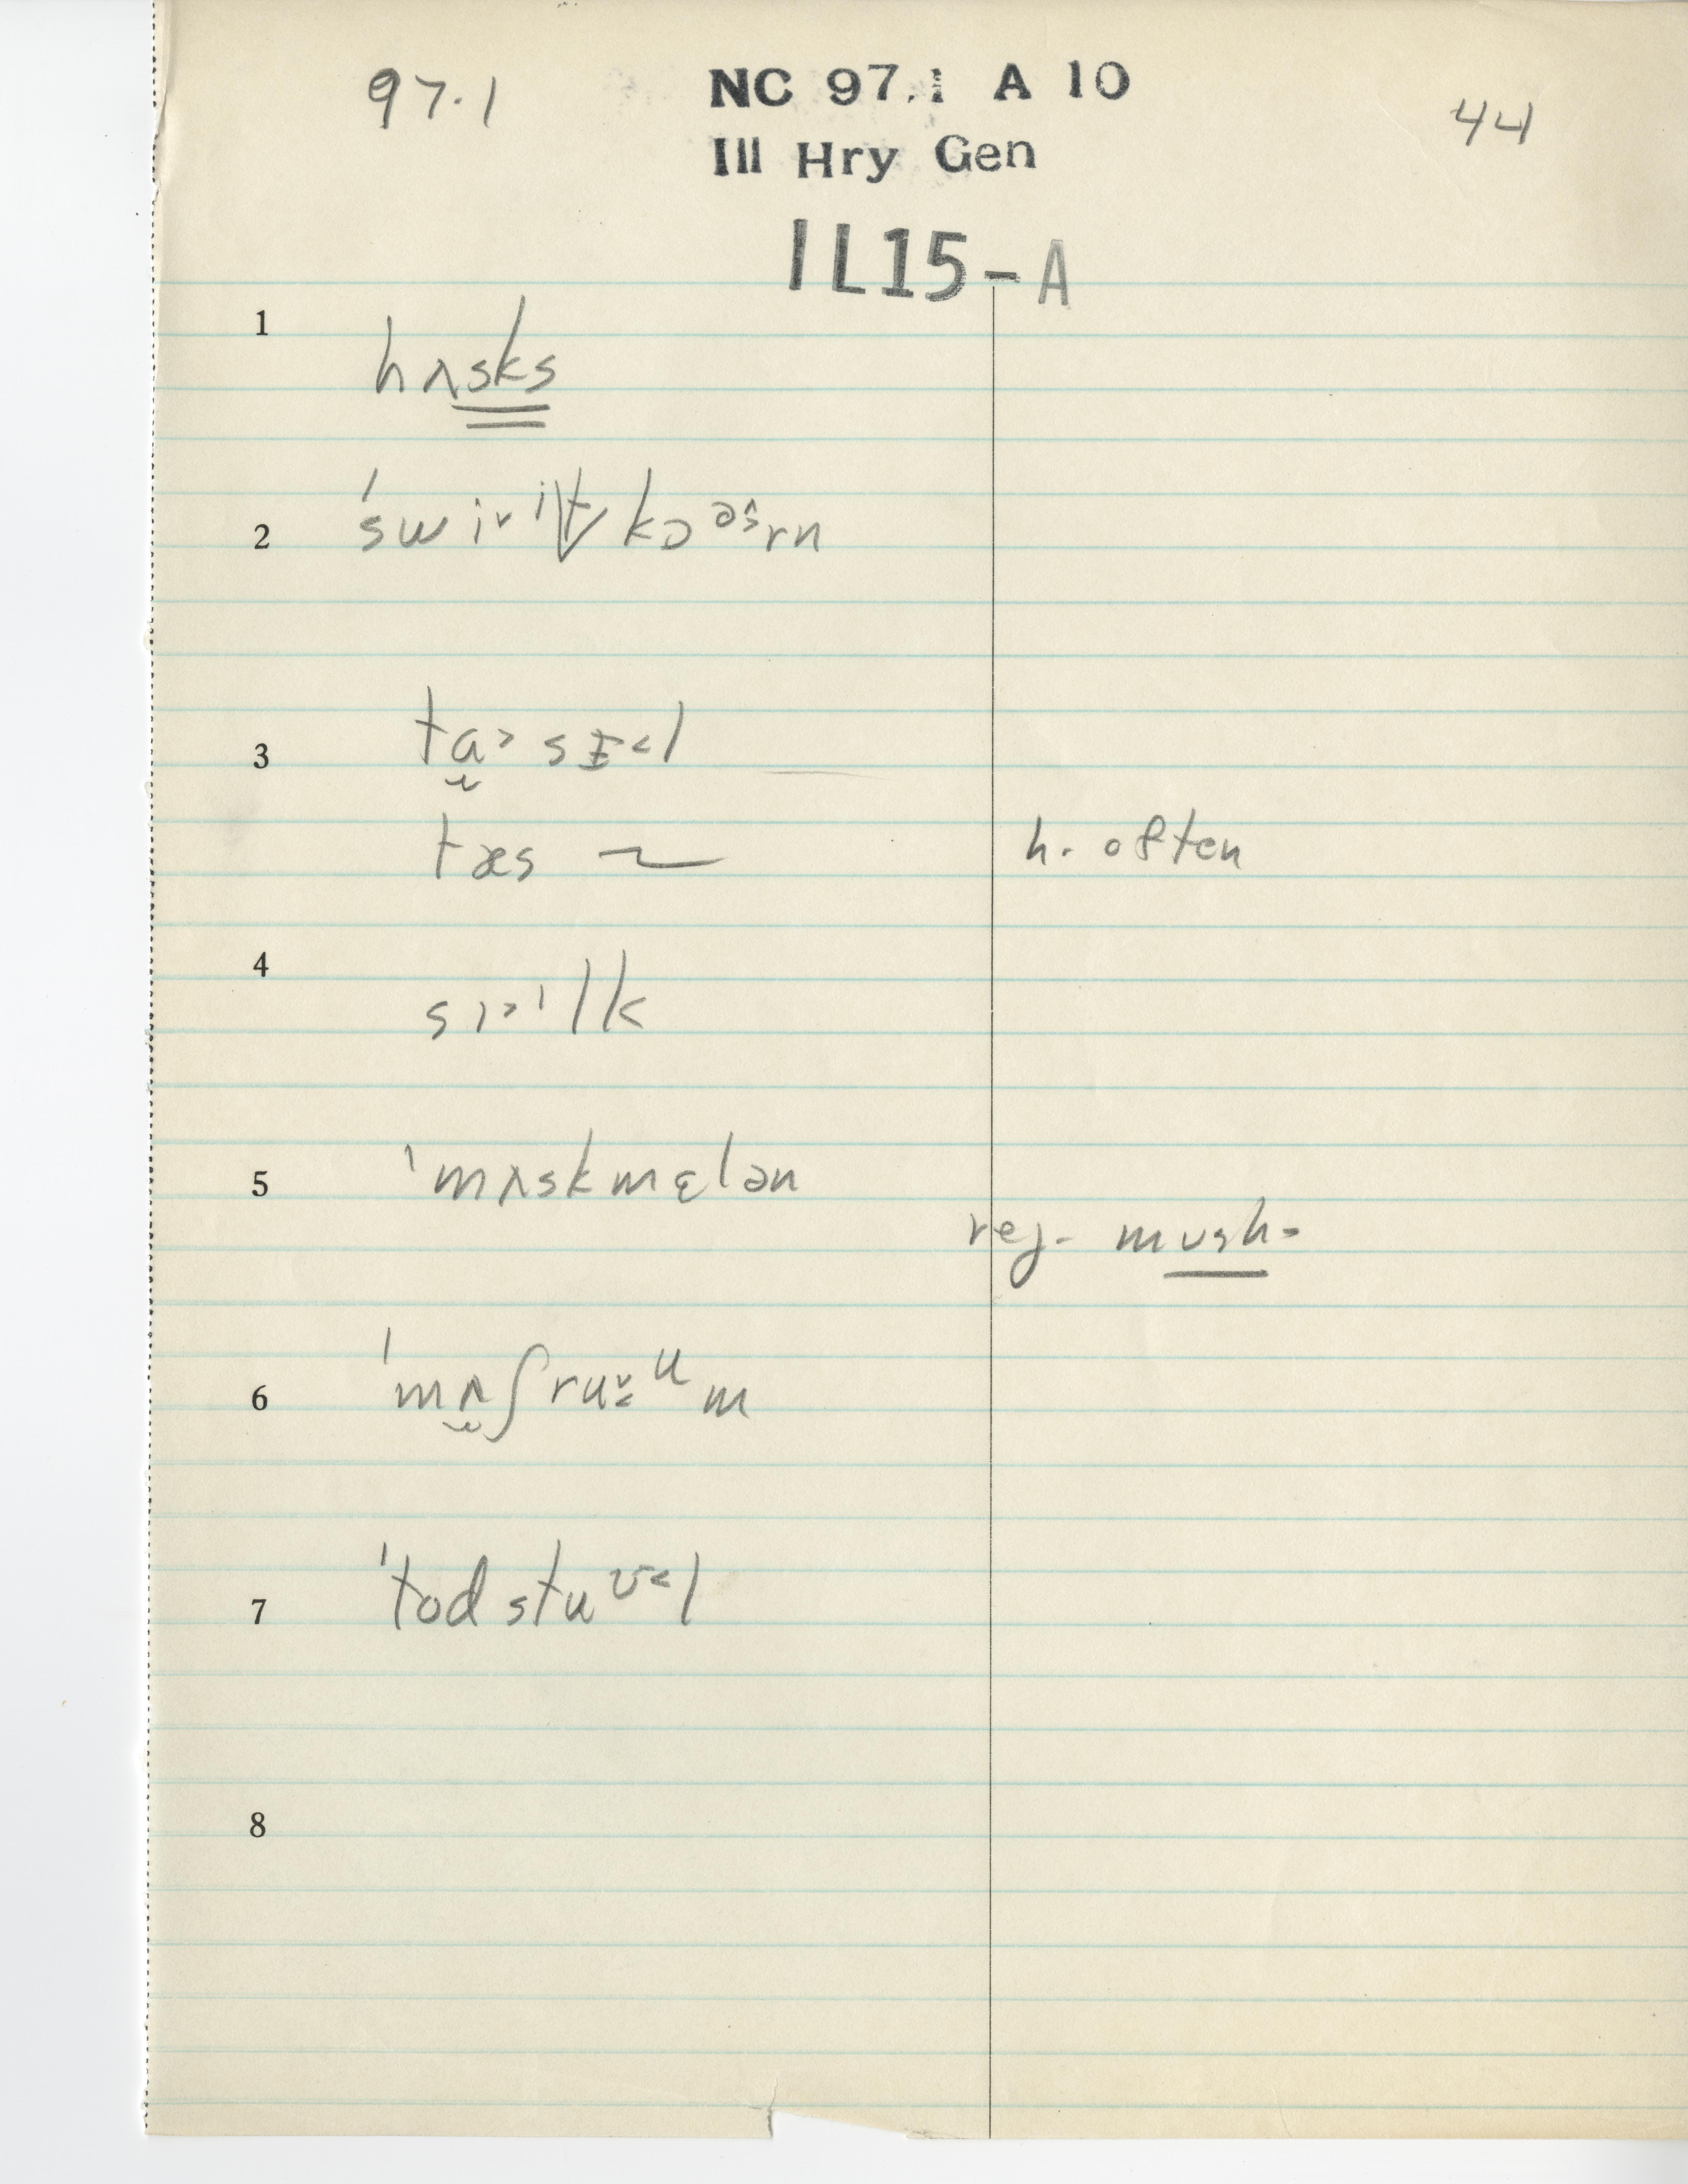 97.1
NC 97.1 A 10
44
Ill Hry Gen
IL15-A
1
hʌsks
2
ˈswi˅ⁱt kɔᵊ˂rn
3
ta˃sɪ˂l
tæs ~
h. often
4
sɪ˃ˡlk
5
ˈmʌskmɛlən
rej. mush-
6
ˈmʌʃru˅ᵘm
7
ˈtodstuᶷ˂l
8